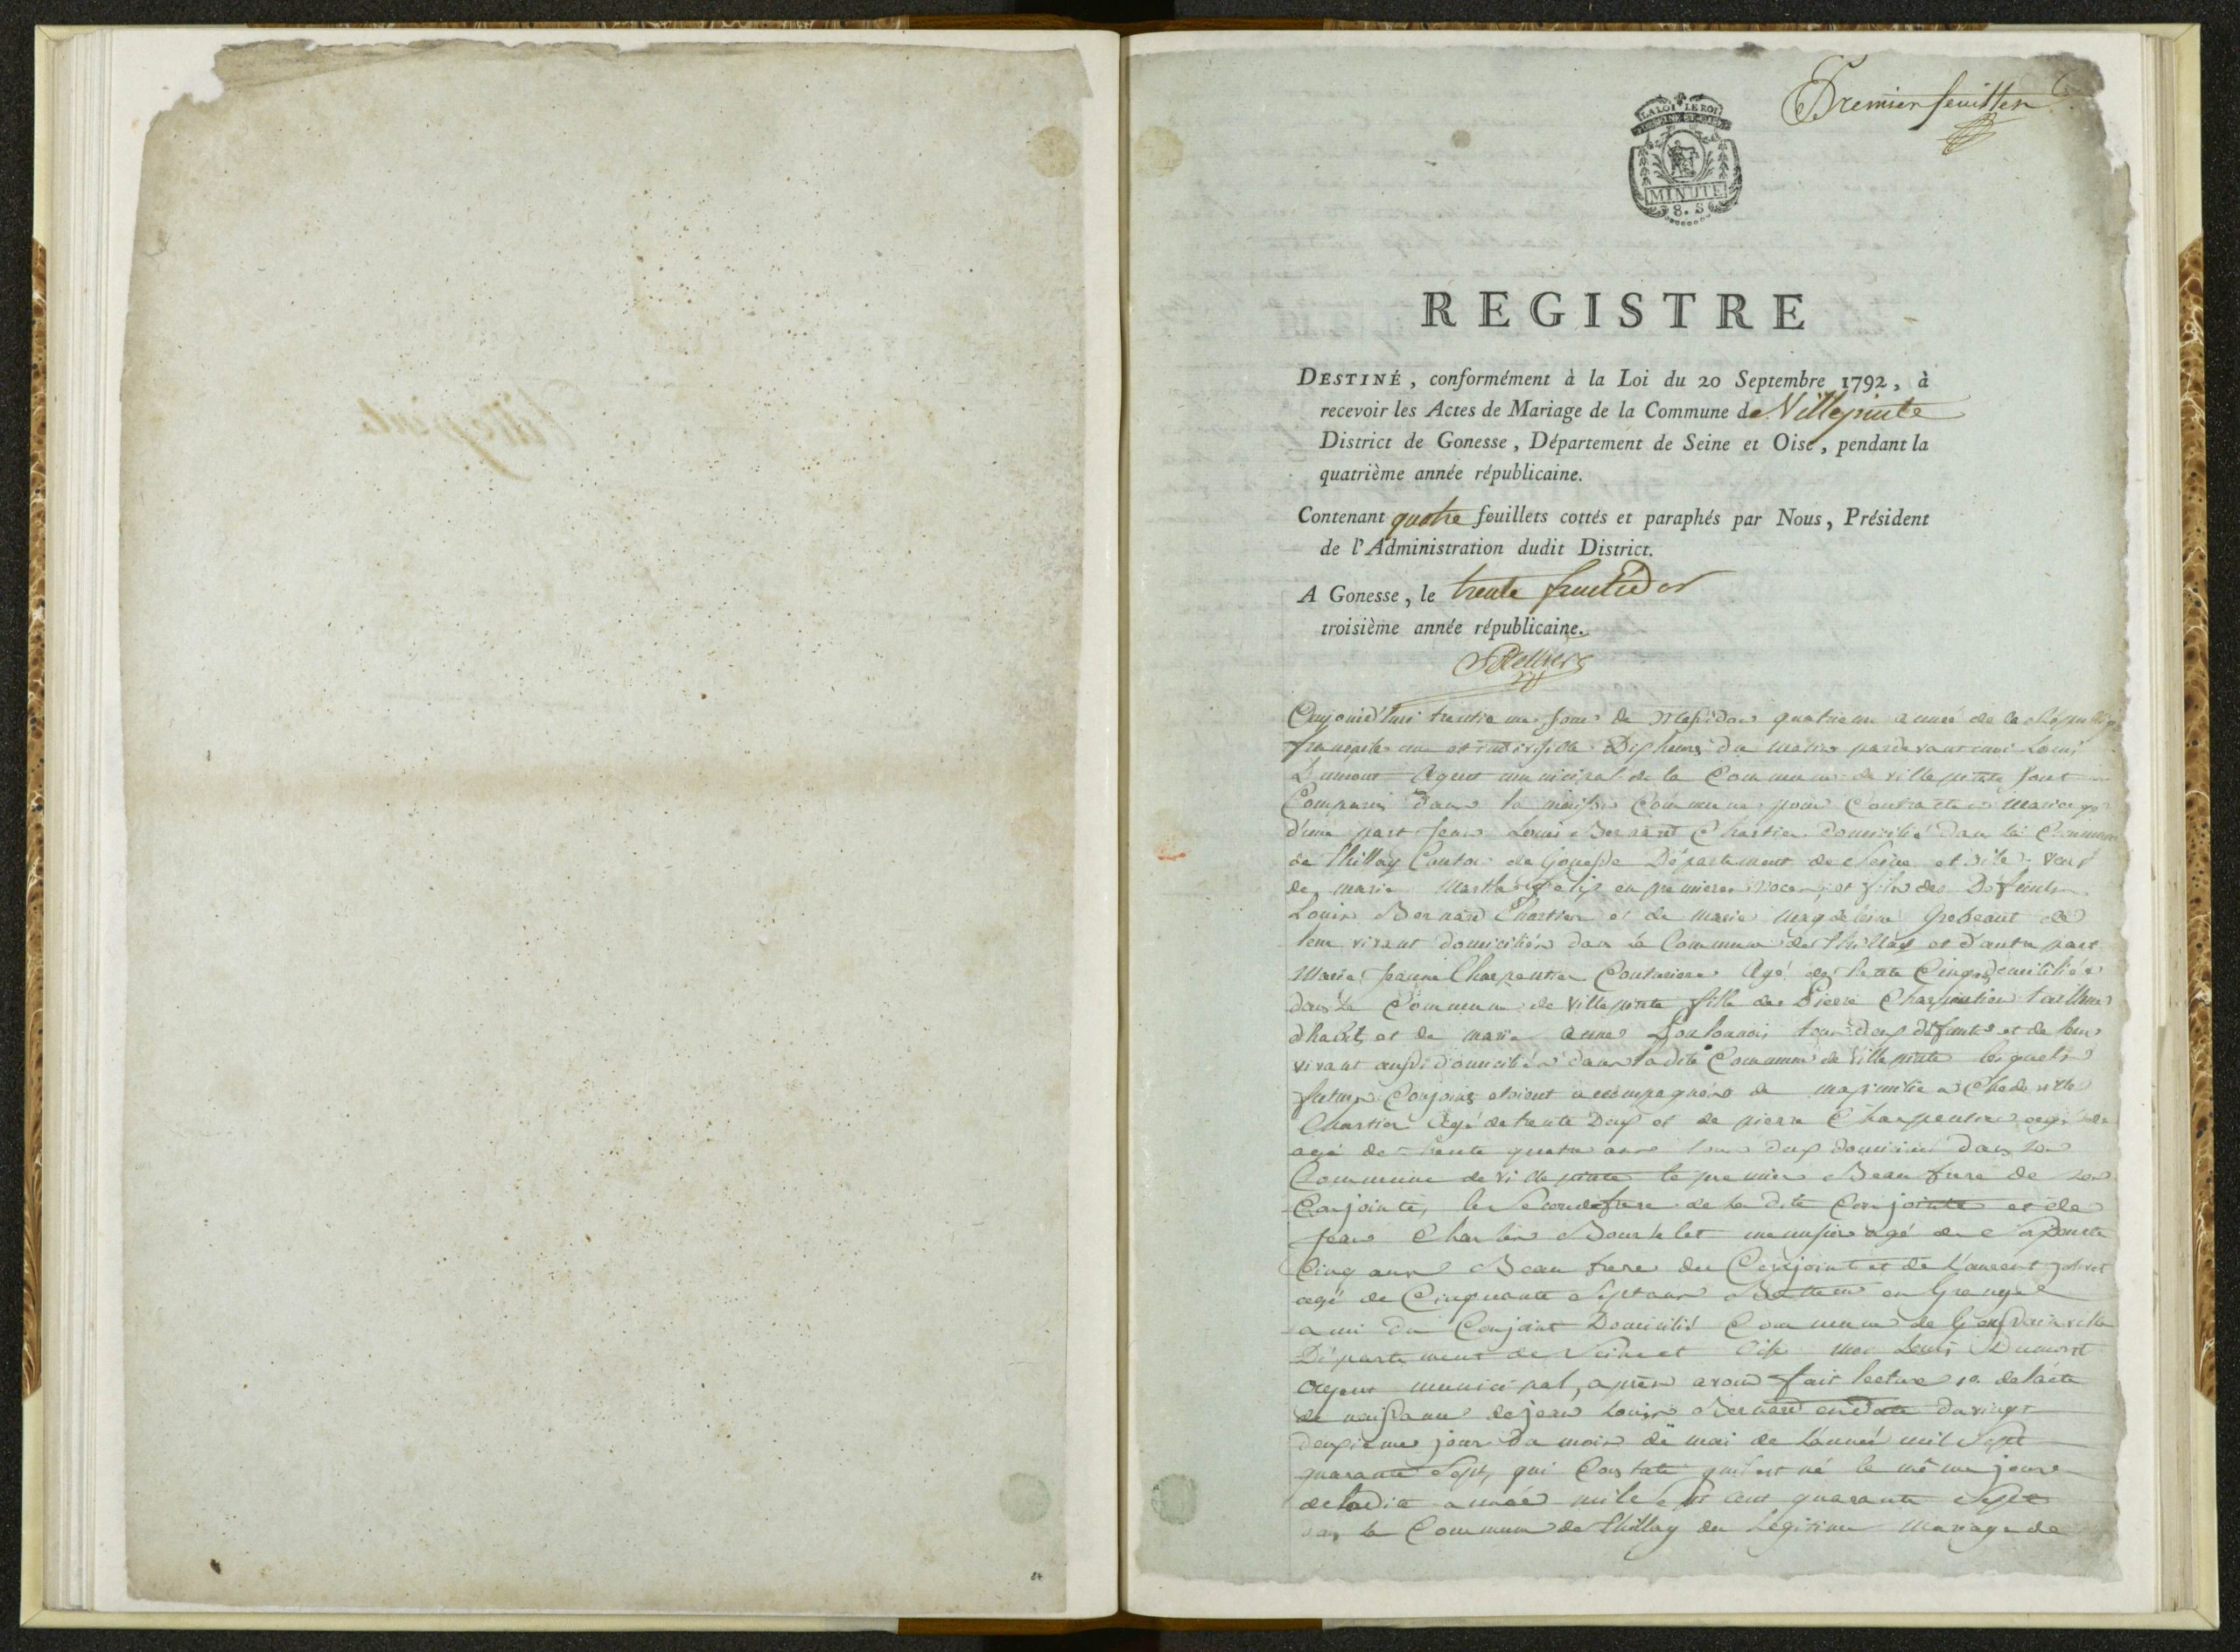 Premier feuillet
LA LOI LE ROI
MINUTE
8. S
REGISTRE
DESTINÉ, conformément à la Loi du 20 Septembre 1792, à
recevoir les Actes de Mariage de la Commune de Villepinte
District de Gonesse, Département de Seine et Oise, pendant la
quatrième année républicaine.
Contenant quatre feuillets cottés et paraphés par Nous, Président
de l'Administration dudit District.
A Gonesse, le trente fructidor
troisième année républicaine.
Aujourd'hui trentieme jour de Messidor quatrieme année de la
française une et indivisible Dix heures du matin pardevant moi Louis
Dumont Agent municipal de la Commune de ville pinte sont
Comparus dans la maison Commune pour Contracter mariage
d'une part Jean Louis Bernard Chartier domicilié dans la Commune
de thillay Canton de Gonesse Département de Seine et oise veuf
de marie Marthe en premieres noces et fils des Defunts
Louis Bernard Chartier et de marie magdeleine de
leur vivant domiciliés dans la Commune de thillay et d'autre part
Marie Jeanne Charpentier Couturiere Agé de trente Cinq domiciliée
dans la Commune de Villepinte fille de Pierre Charpentier tailleur
d'habit et de marie anne tous deux défunts et de leur
vivant aussi domiciliés dans ladite Commune de Villepinte lesquels
futurs Conjoins etoient accompagnés de
Chartier Agé de trente Deux et de pierre Charpentier
agé de trente quatre ans tous deux domiciliés dans la
Commune de villepinte le premier Beau frere de la
Conjointe, le Second frere de la dite Conjointe et de
Jean Charles menuisier agé de
Cinq ans Beau frere du Conjoint et de Laurent
agé de Cinquante Sept ans Batteur en Grange
ami du Conjoint Domicilié Commune de
Département de Seine et Oise Moi Louis Dumont
Agent municipal, après avoir fait lecture 1o. de l'acte
de naissance de jean Louis Bernard en date du vingt
deuxieme jour du mois de mai de l'année mil Sept
quarante Sept, qui Constate qu'il est né le même jour
de ladite année mile Sept cent quarante Sept
dans la Commune de thillay du Légitime mariage de